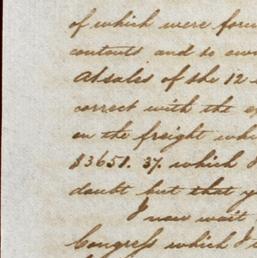 of which were foun
contents and so
A/sales of the 12
correct with the e
on the freight wh
$3651.37. which I
doubt but that y
I now wait
Congress which I